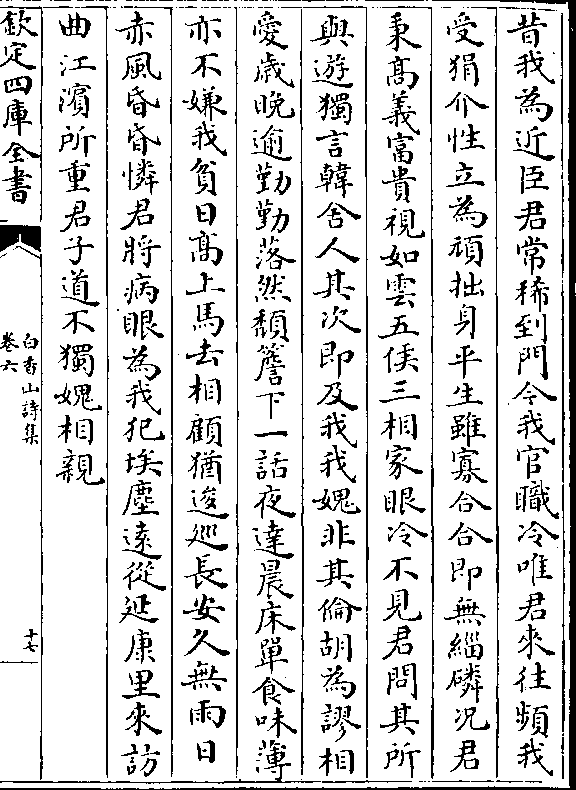 昔我為近臣君常稀到門今我官職冷唯君來往頻我
受狷介性立為頑拙身平生雖寡合合即無緇磷况君
秉髙義富貴視如雲五侯三相家眼冷不見君問其所
與遊獨言韓舍人其次即及我我媿非其倫胡為謬相
愛歲晚逾勤勤落然頽簷下一話夜達晨床單食味薄
亦不嫌我貧日髙上馬去相顧猶逡巡長安久無雨日
赤風昏昏憐君將病眼為我犯埃塵遠從延康里來訪
曲江濵所重君子道不獨媿相親
欽定四庫全書
白香山詩集
卷六
十七